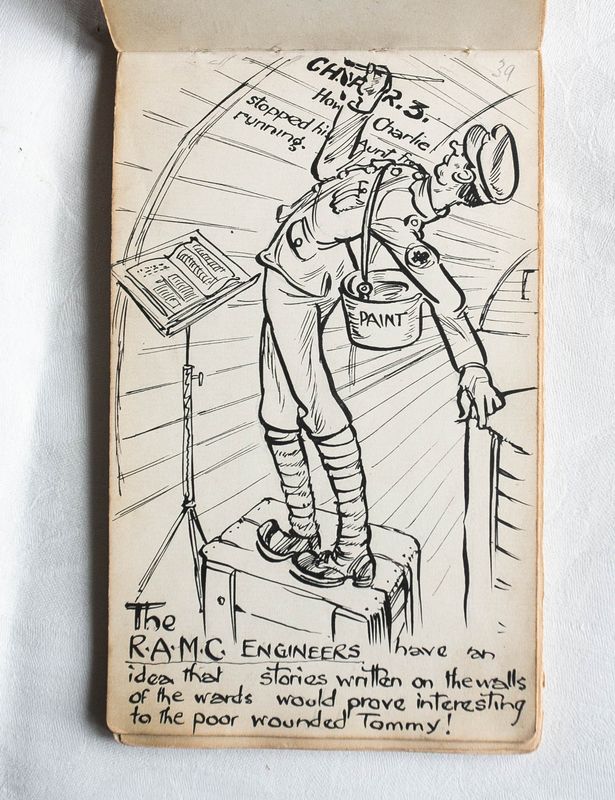 39
CHAP R. 3.
How Charlie
stopped his Aunt f
running.
PAINT
The
R.A.M.C. ENGINEERS have an
idea that stories written on the walls
of the wards would prove interesting
to the poor wounded Tommy!